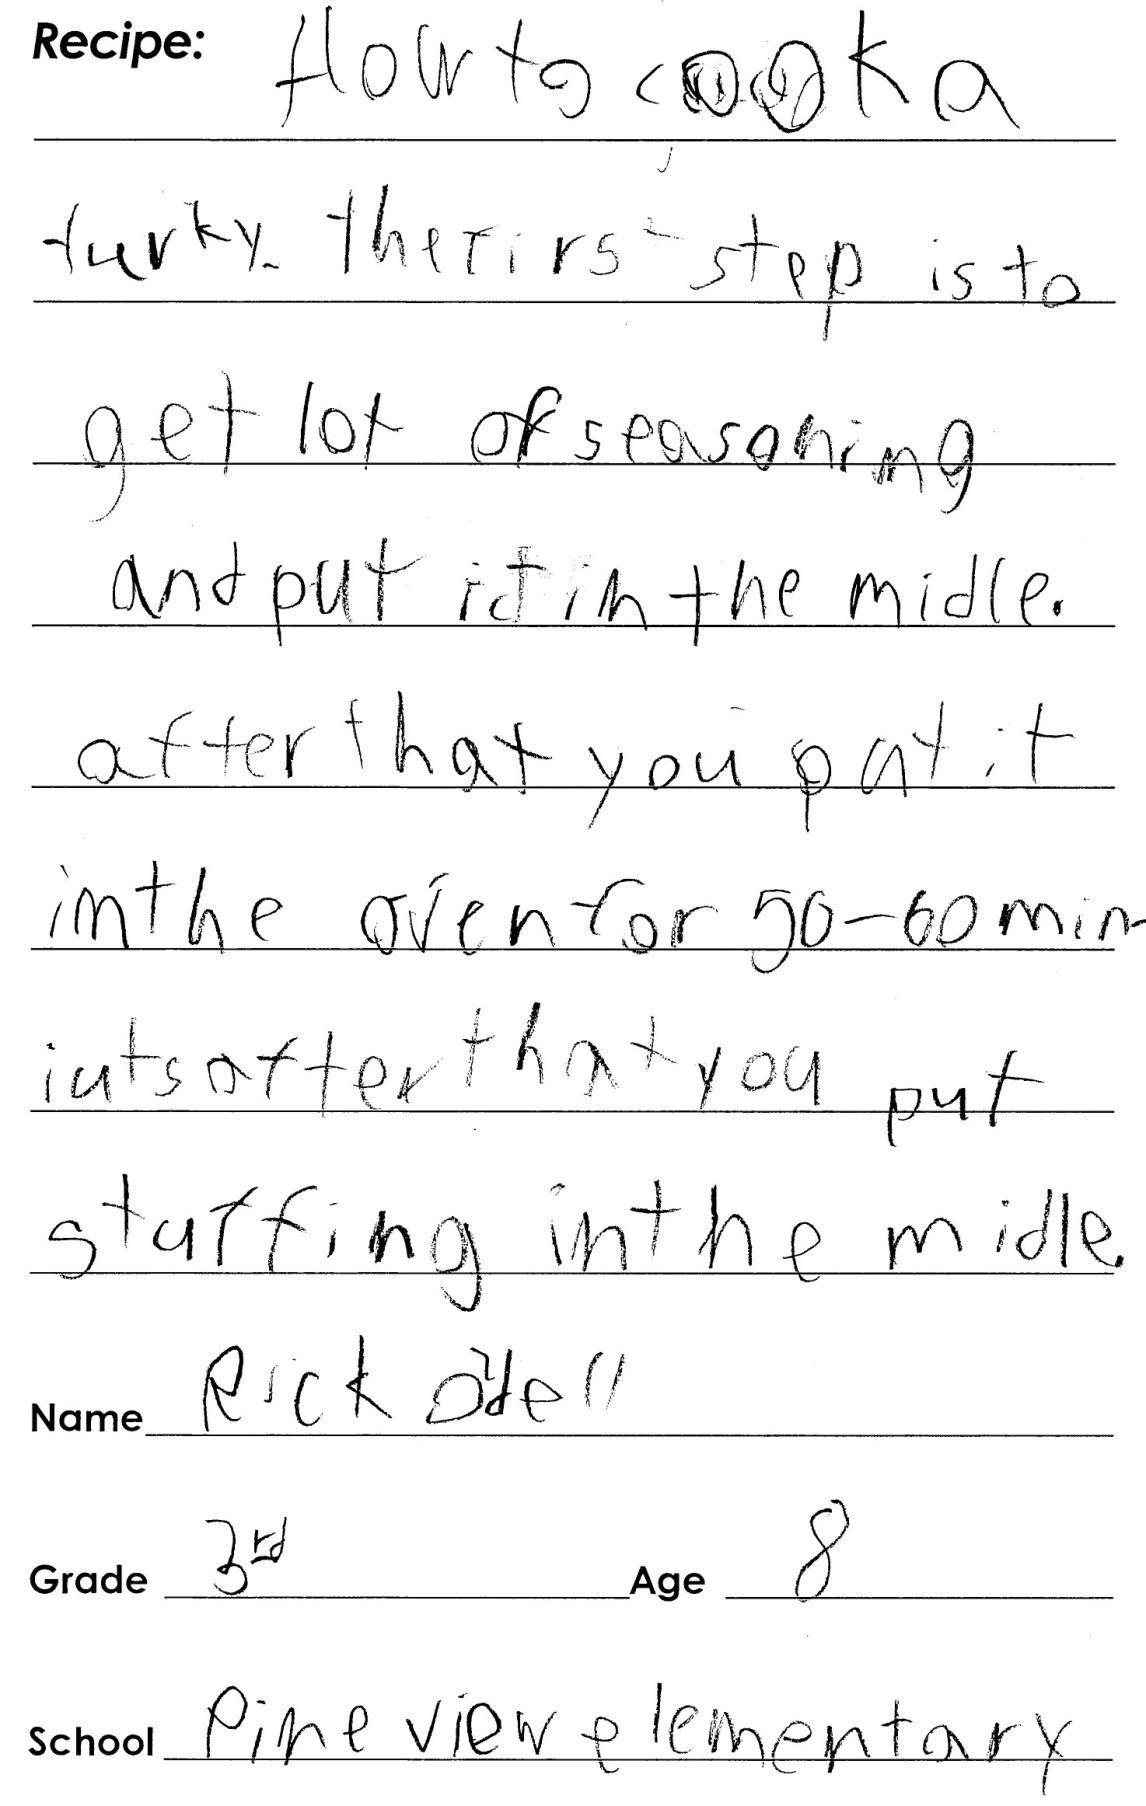 Recipe: How to cook a
turky. the first step is to
get lot of seasoning
and put it in the midle.
after that you pat it
in the oven for 50-60 min-
iuts after that you put
stuffing in the midle.
Name Rick Odell
Grade 3rd Age 8
School Pine view elementary